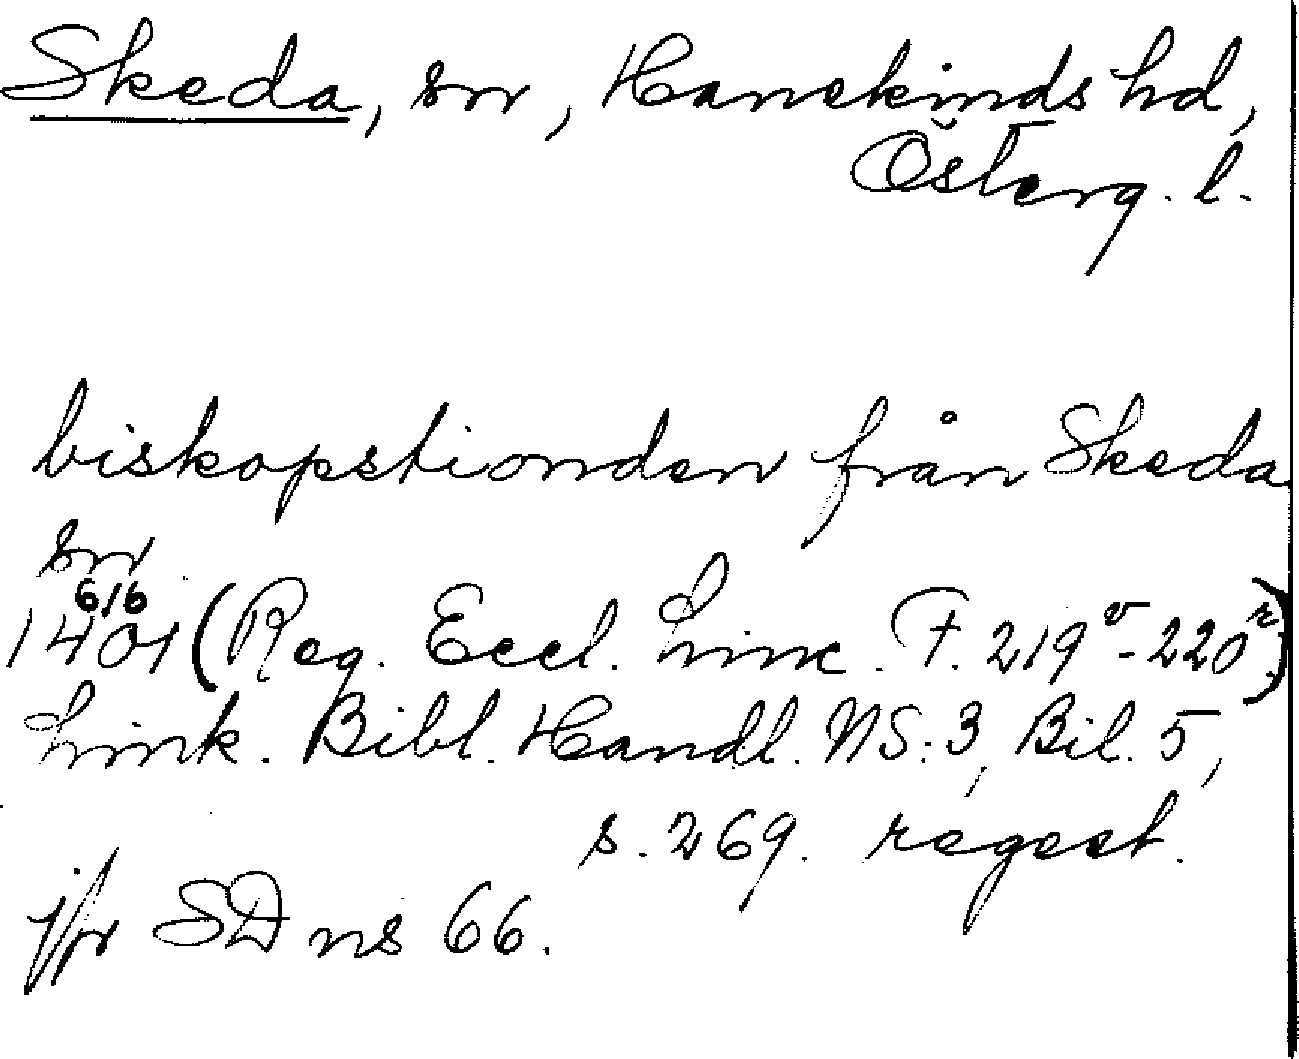 Skeda, sn, Hanekinds hd,
Österg. l.
biskopstionden från Skeda
sn
6/6
1401 (Reg. Eccl. Linc. F. 219v-220r)
Link. Bibl. Handl. NS:3, Bil. 5,
s. 269. regest.
jfr SD ns 66.